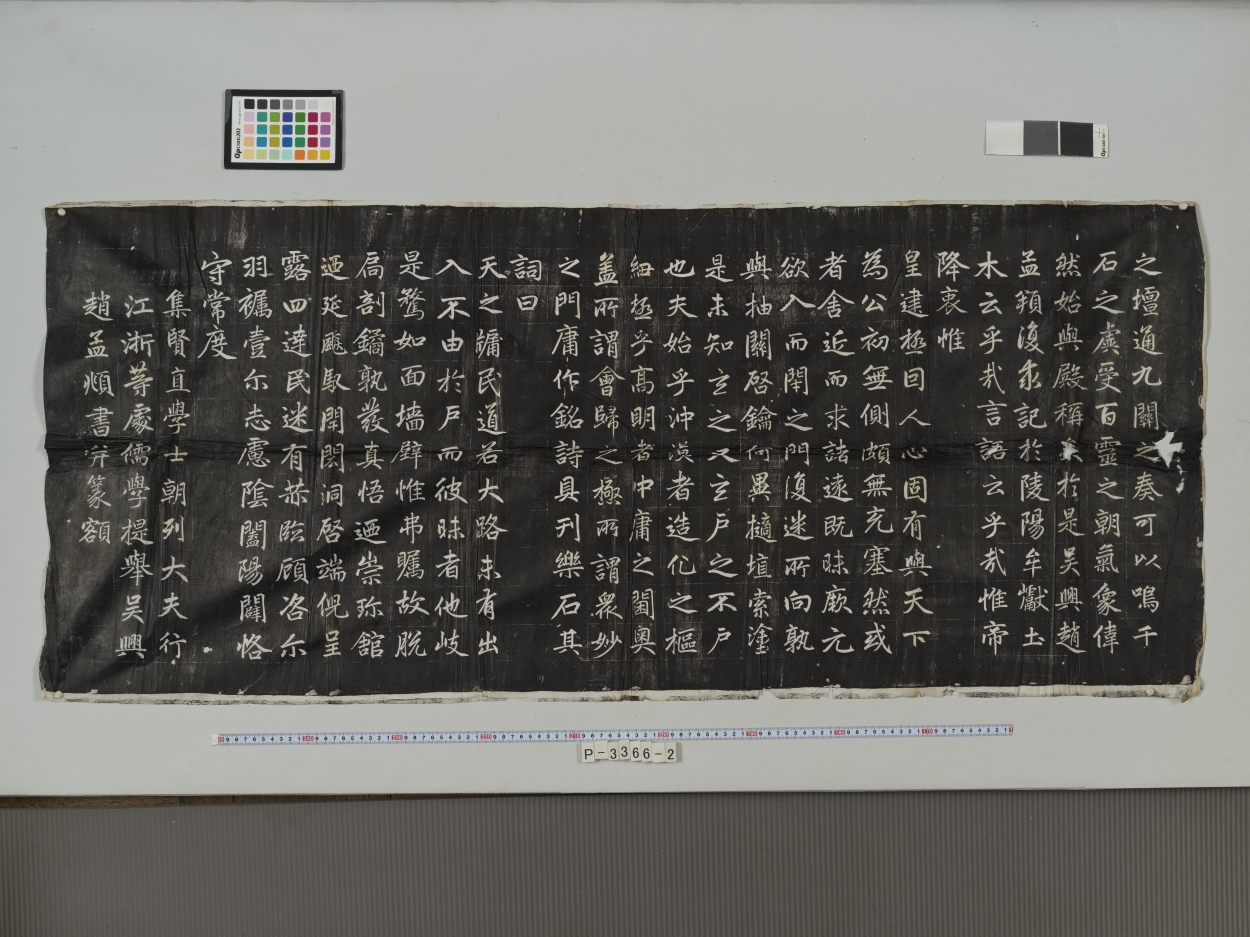 之壇通九關之奏可以鳴千
石之虡受百靈之朝氣象偉
然始與殿稱於是吴興趙
孟頫復求記於陵陽牟巘土
木云乎哉言語云乎哉惟帝
降衷惟
皇建極囙人心固有與天下
為公初無側頗無充塞然或
者舍近而求諸遠既昧厥元
欲入而閉之門復迷所向孰
與抽關啓鑰何異擿埴索塗
是未知玄之又玄戶之不戶
也夫始乎沖漠者造化之樞
紐極乎高明者中庸之閫奧
盖所謂會歸之極所謂衆妙
之門庸作銘詩具刊樂石其
詞曰
天之牖民道若大路未有出
入不由於戶而彼昧者他岐
是騖如面墻壁惟弗矚故脫
扃剖鐍孰發真悟迺崇琳館
迺延飈馭閶闔洞啓端倪呈
露四達民迷有赫臨顧咨尔
羽襴壹尔志慮陰闔陽闢恪
守常度
集賢直學士朝列大夫行
江浙等處儒學提舉吴興
趙孟頫書并篆額
P-3366-2